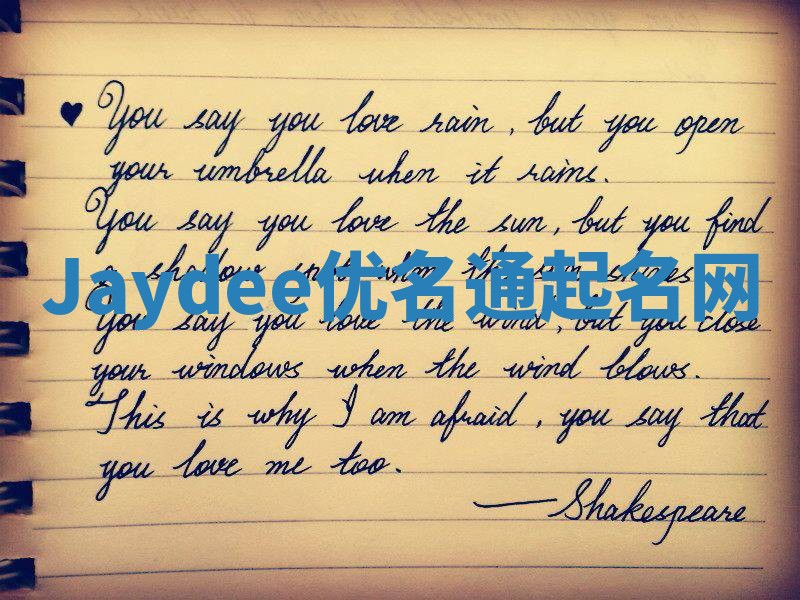 ♥ You say you love rain, but you open
your umbrella when it rains.
You say you love the sun, but you find
a shadow spot when the sun shines
Jaydee优名通起名网
You say you love the wind, but you close
your windows when the wind blows.
This is why I am afraid, you say that
you love me too.
—Shakespeare